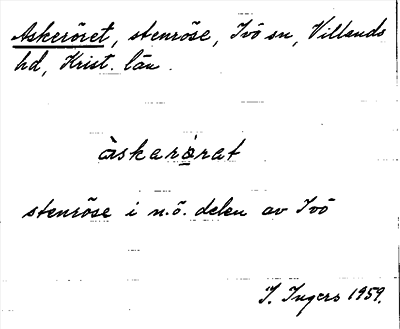 Askeröret, stenröse, Ivö sn, Villands
hd, Krist. län.
àskarö̀rat
stenröse i n.ö. delen av Ivö
I. Ingers 1959.